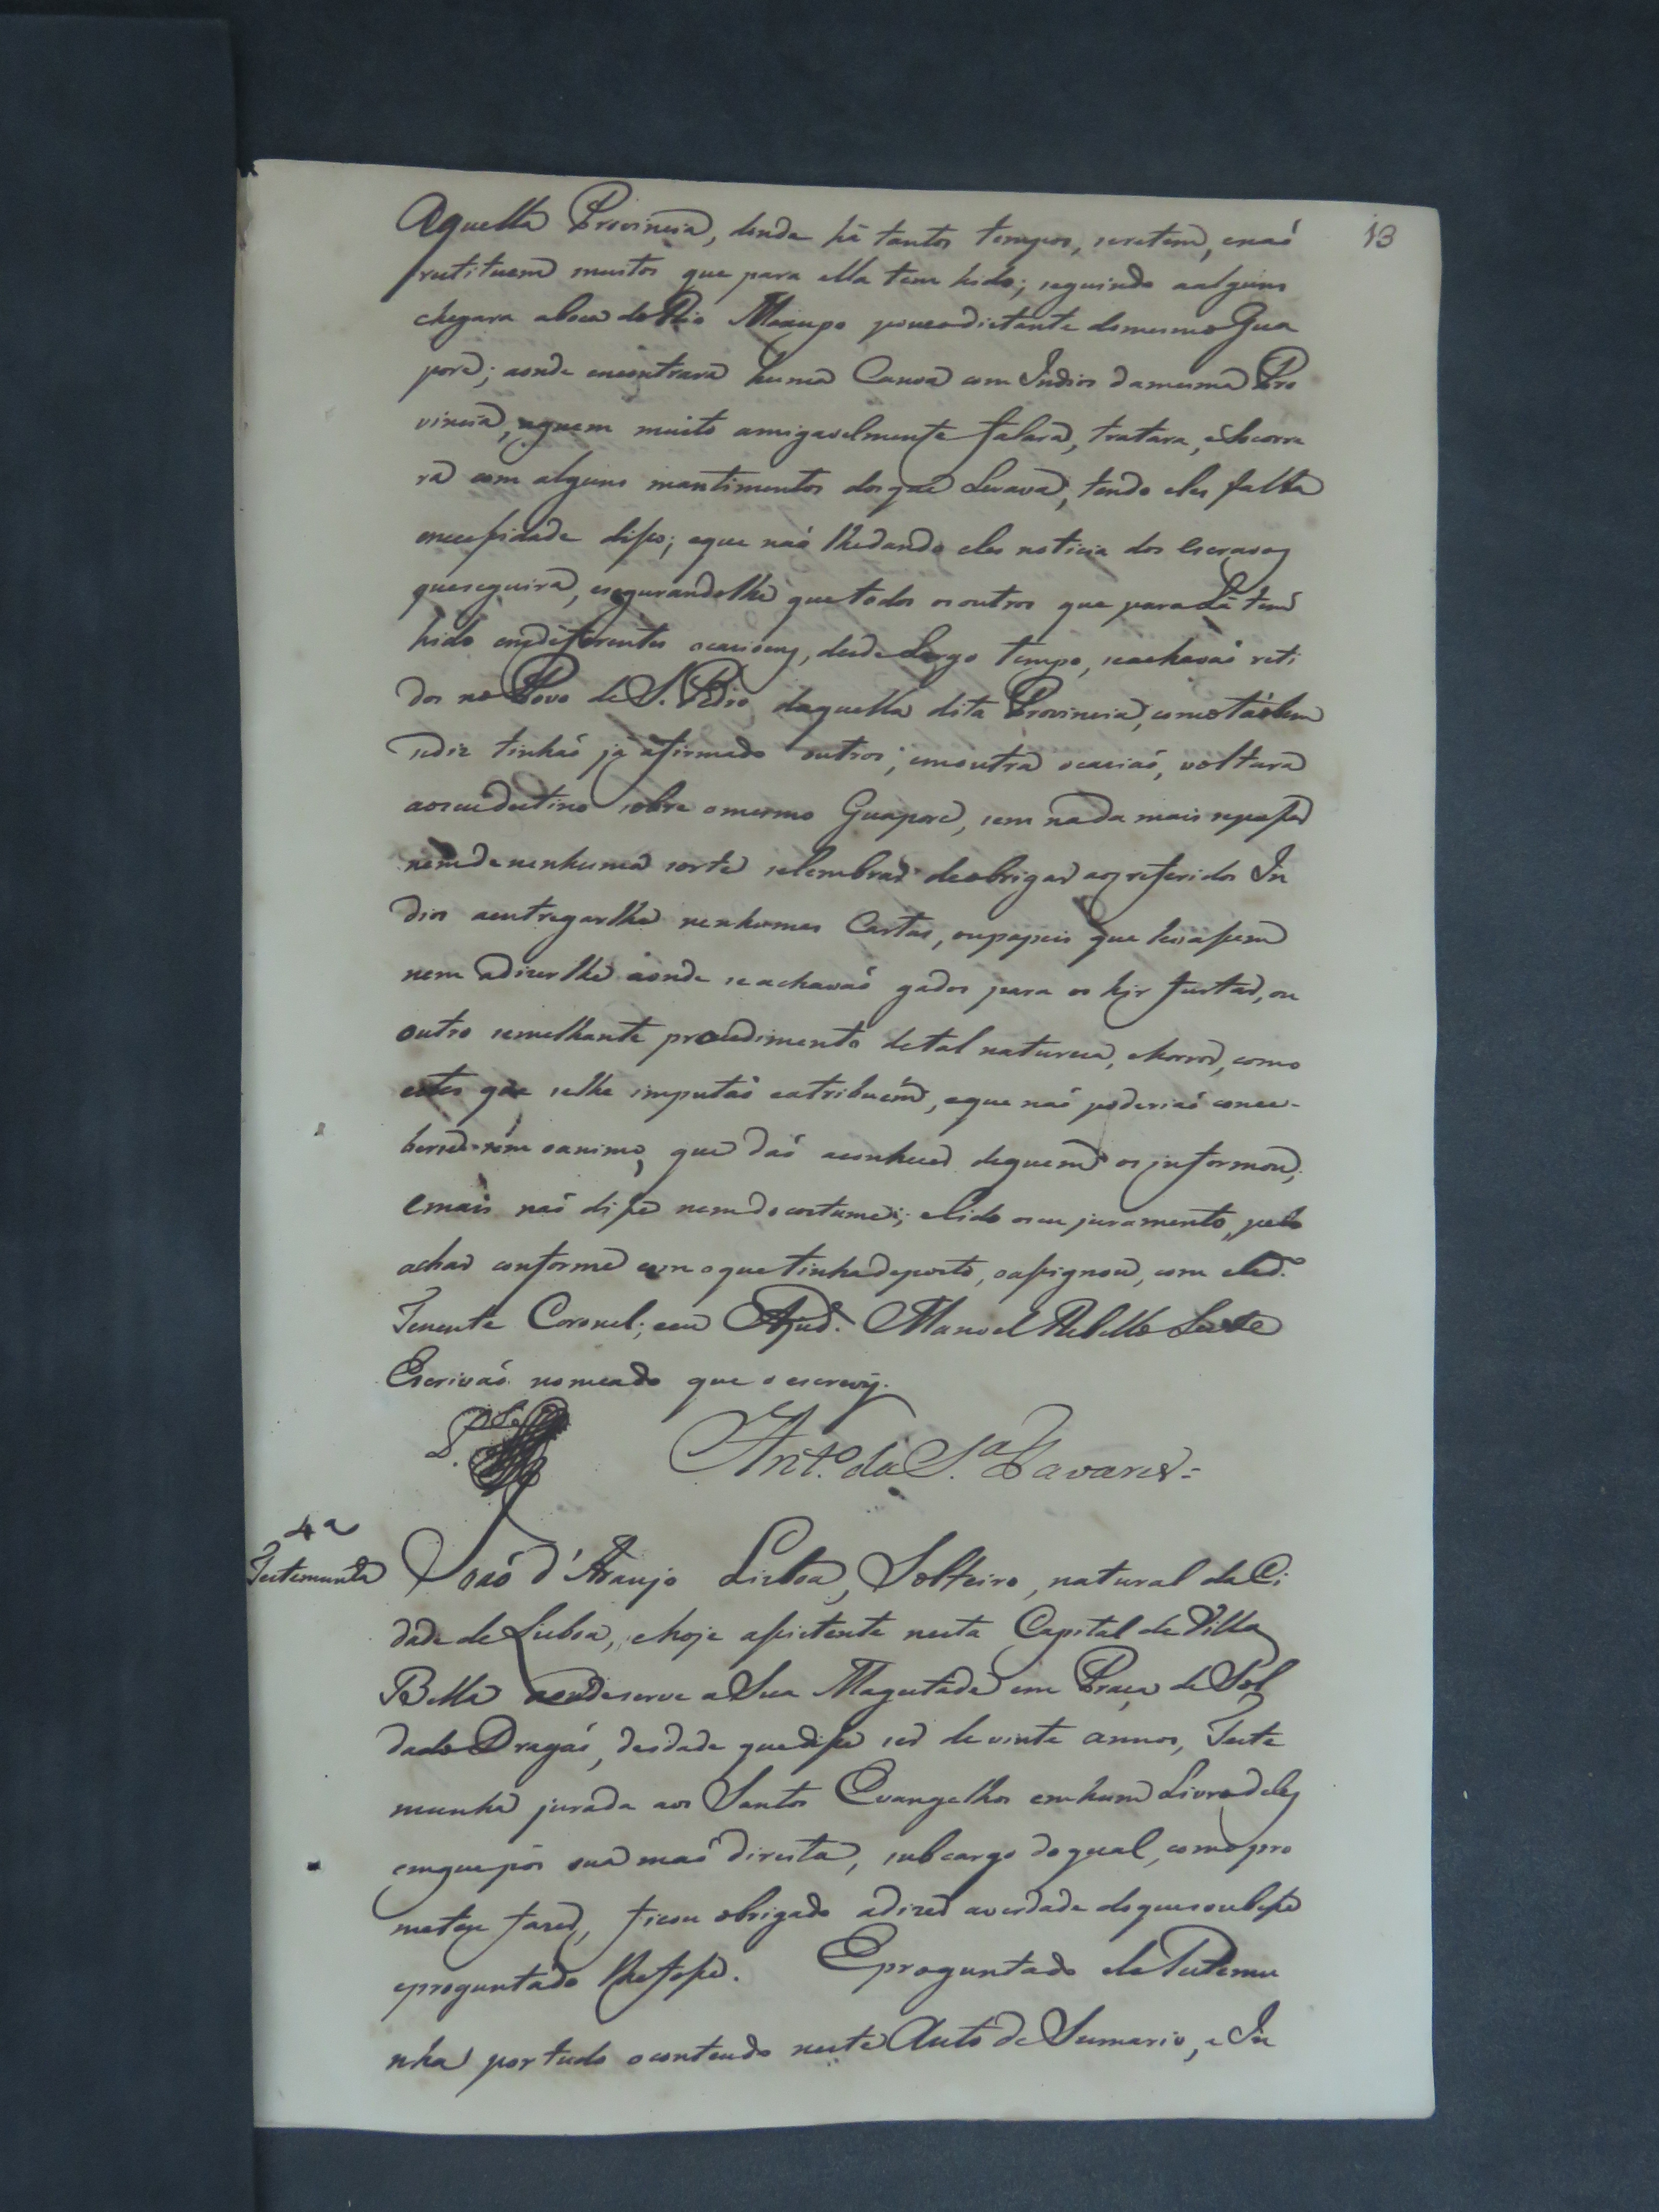 13
Aquella Provincia, donde há tantos tempos, seretem, enaó
restituem muitos que para ella tem hido; seguindo aalguns
chegara aboca do Rio Maxupo pouco distante domesmo Gua
poré; aonde encontrara huma Canoa com Indios damesma Pro
vincia, aquem muito amigavelmente falara, tratara, e Socorre
ra com alguns mantimentos dosque Levava, tendo eles falta
enecessidade disso; eque naó lhedando eles noticia dos Escravos
queseguira, esegurandolhe quetodos osoutros que paraLá tem
hido emdiferentes ocasioens, desde Largo tempo, seachavaó reti
dos no Povo de S. Pedro daquella dita Provincia, comotãobem
tinhaó já afirmado outros; emoutra ocasiaó, voltara
aoseudestino sobre omesmo Guaporé, sem nada mais
nemdenenhuma sorte selembrar deobrigar aosreferidos In
dios aentregarlhe nenhumas Cartas, oupapeis que levassem
nem adizerlhe aonde seachavaó gados para os hir furtar, ou
outro semelhante procedimento detal natureza, ehorror, como
estes que selhe imputaó eatribuem, eque naó poderiaó conce-
oanimo, que daó aconhecer dequem osinformou;
emais naó disse nemdocostume; elido oseu juramento, pelo
achar conforme com oquetinhadeposto, oassignou, com eled.º
Tenente Coronel; eeu Ajud. Manoel Rebello Leite
Escrivaó nomeado que o escrevy.
Ant.º da S.ª Tavares=
4ª
Testemunha
Joaó d'Araujo Lisboa, Solteiro, natural daCi
dade de Lisboa, ehoje assistente nesta Capital de Villa
Bella aondeserve aSua Magestade em Praça de Sol
dado Dragaó, deidade quedisse ser de vinte annos, Teste
munha jurada aos Santos Evangelhos emhum Livro deles
emquepós sua maó direita, subcargo doqual, comopro
meteu fazer, ficou obrigado adizer averdade doquesoubesse
eproguntado lhefosse. Eproguntado ele Testemu
nha por tudo ocontendo neste Auto de Sumario, e In